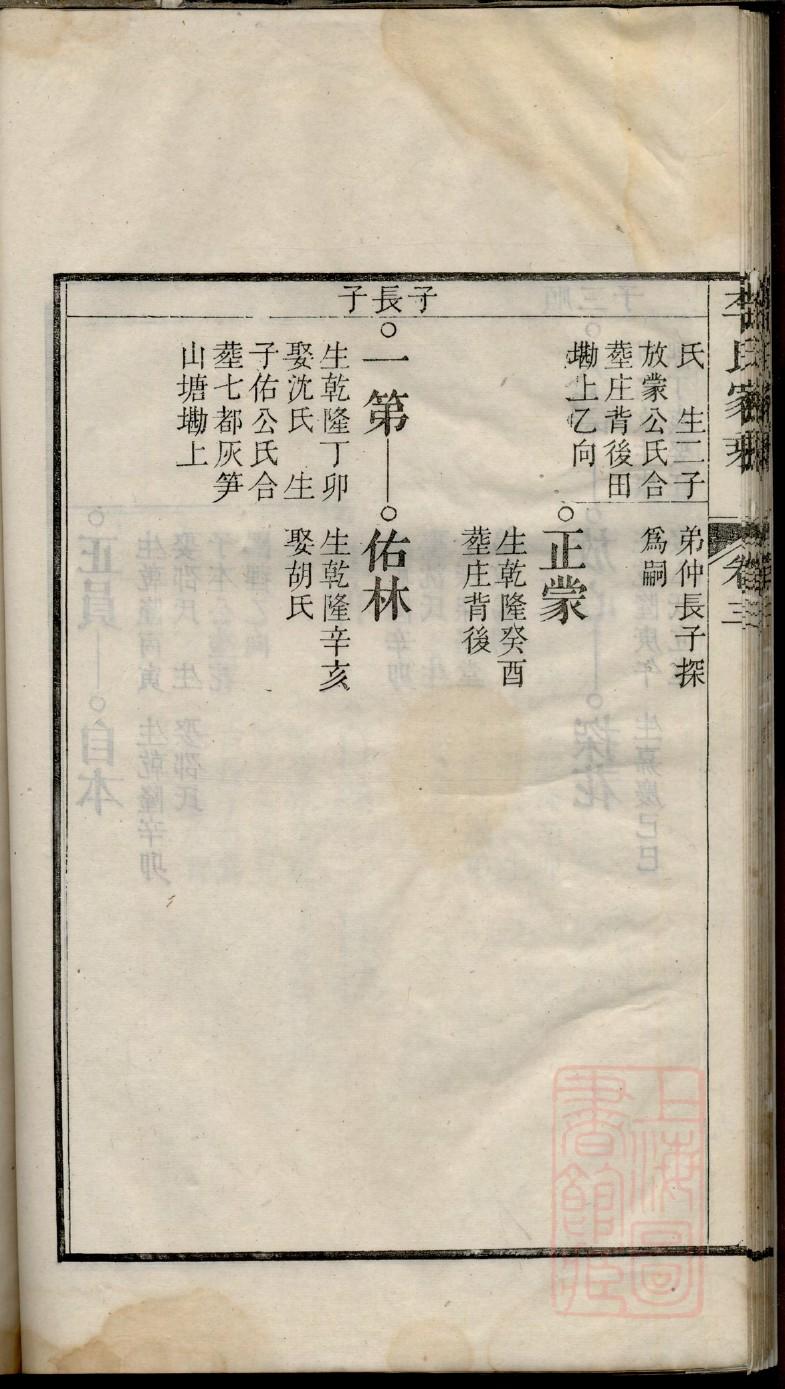 李氏家
卷三
子長子
氏　生二子
放蒙公氏合
塟庄背後田
塝上乙向
弟仲長子探
爲嗣
○正蒙
生乾隆癸酉
塟庄背後
○一第
生乾隆丁卯
娶沈氏　生
子佑公氏合
塟七都灰笋
山塘塝上
○佑林
生乾隆辛亥
娶胡氏
上海圖
書館藏